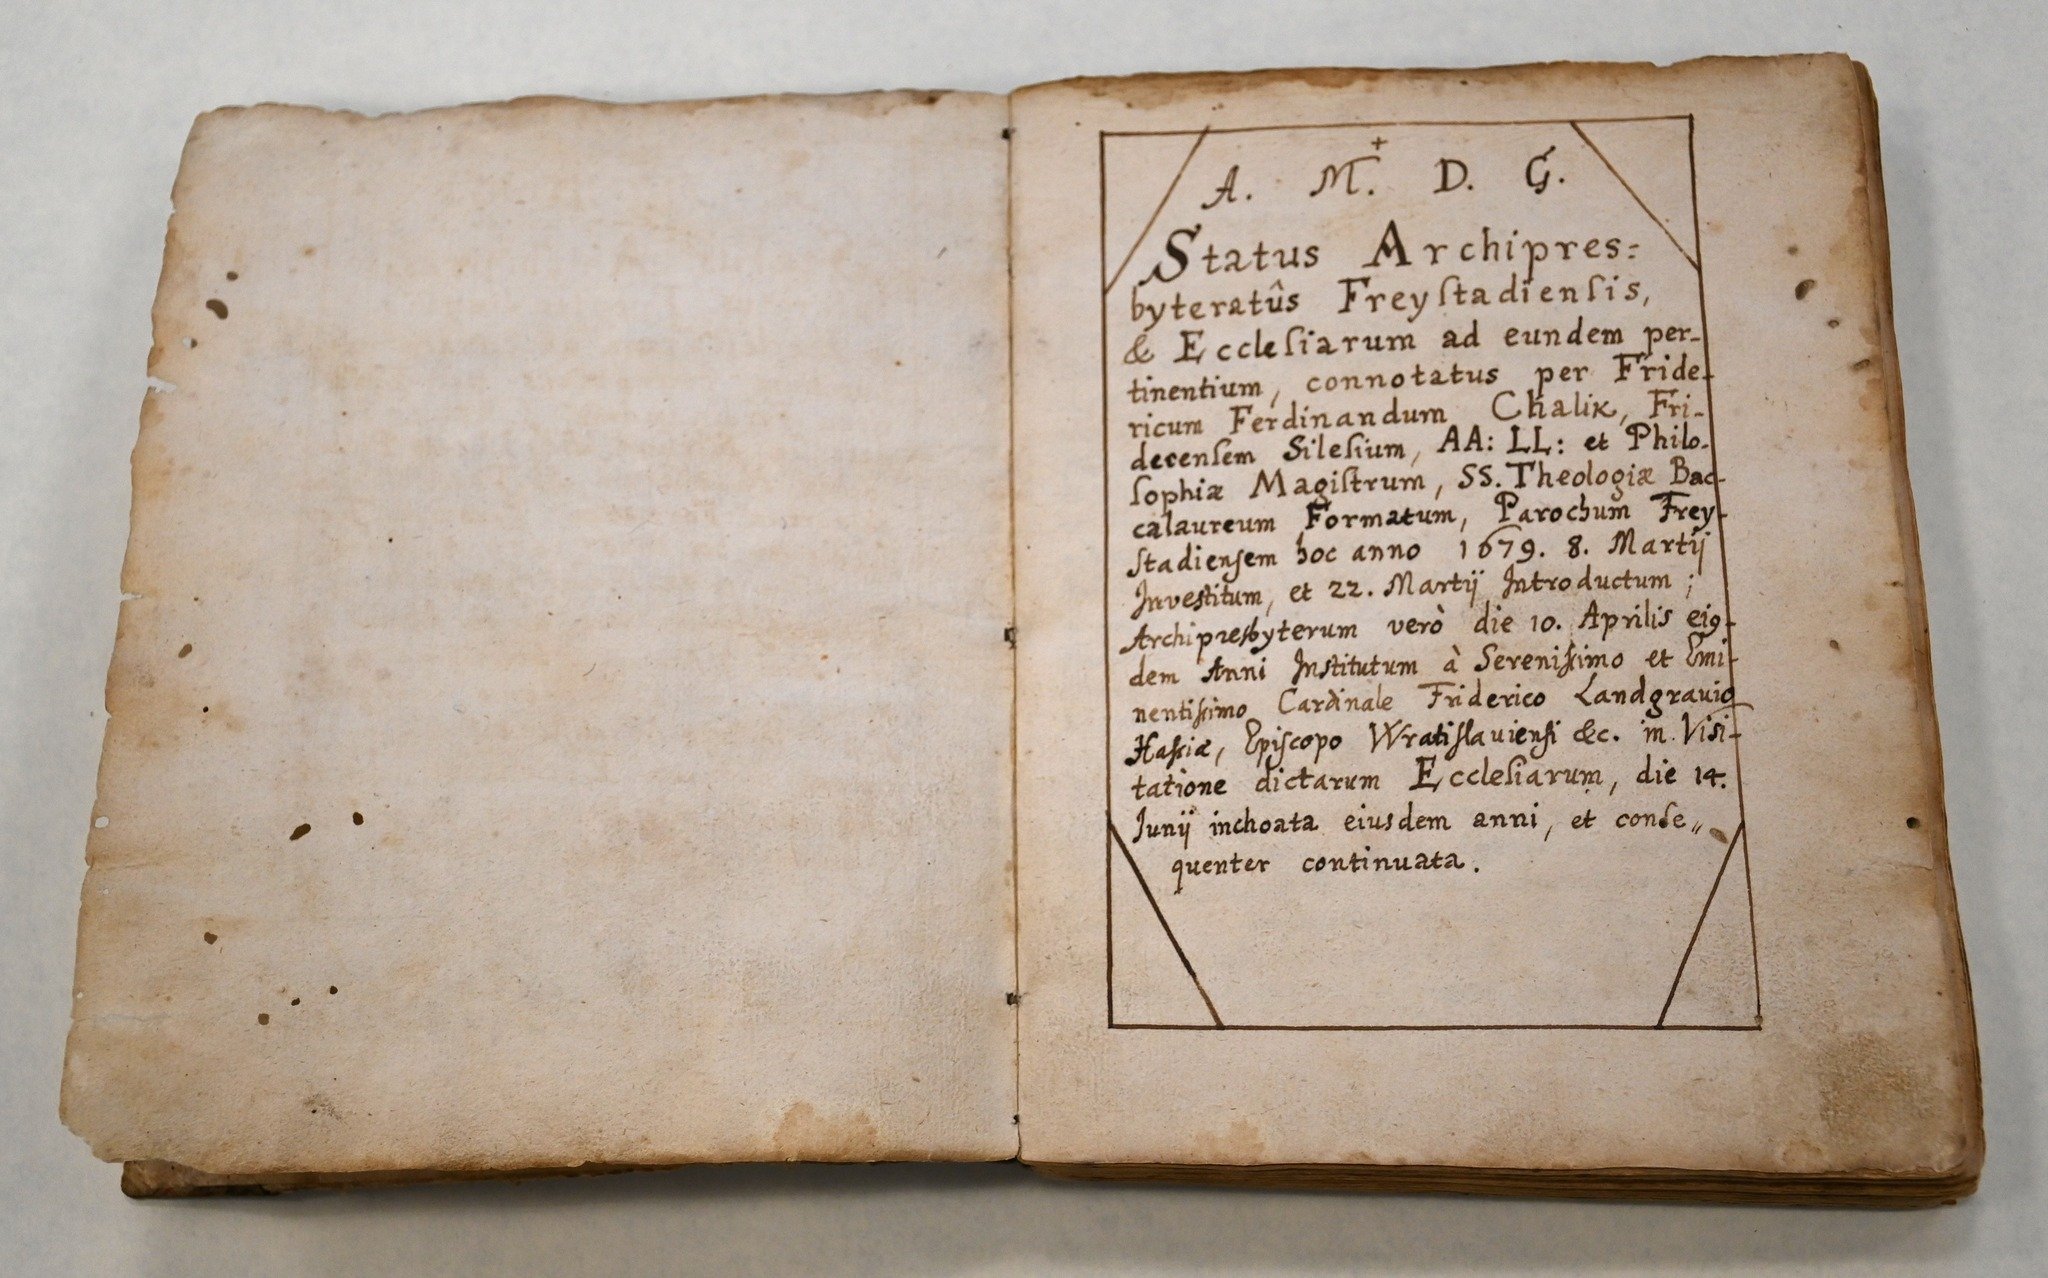 +
A. M. D. G.
Status Archipres=
byteratûs Freyſtadienſis,
& Eccleſiarum ad eundem per-
tinentium, connotatus per Fride-
ricum Ferdinandum Chalik, Fri-
decenſem Sileſium, AA: LL: et Philo-
ſophiæ Magiſtrum, SS. Theologiæ Bac-
calaureum Formatum, Parochum Frey-
ſtadienſem hoc anno 1679. 8. Martij
Inveſtitum, et 22. Martij Introductum ;
Archipresbyterum verò die 10. Aprilis eiq-
dem Anni Inſtitutum à Sereniſsimo et Emi-
nentiſsimo Cardinale Friderico Landgravio
Haſsiæ, Epiſcopo Wratiſlavienſi &c. in Viſi-
tatione dictarum Eccleſiarum, die 14.
Junij inchoata eiusdem anni, et conſe„
quenter continuata.